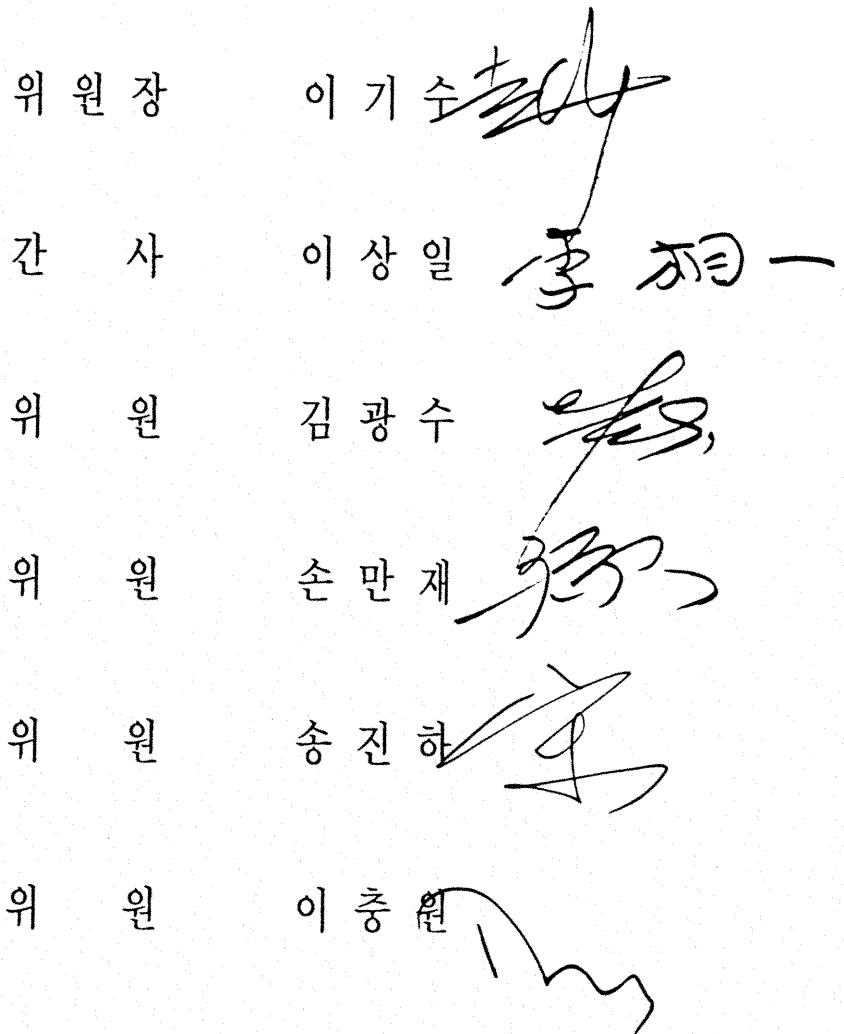 위 원 장 이 기 수
간 사 이 상 일 李 相 一
위 원 김 광 수
위 원 손 만 재
위 원 송 진 하
위 원 이 충 원